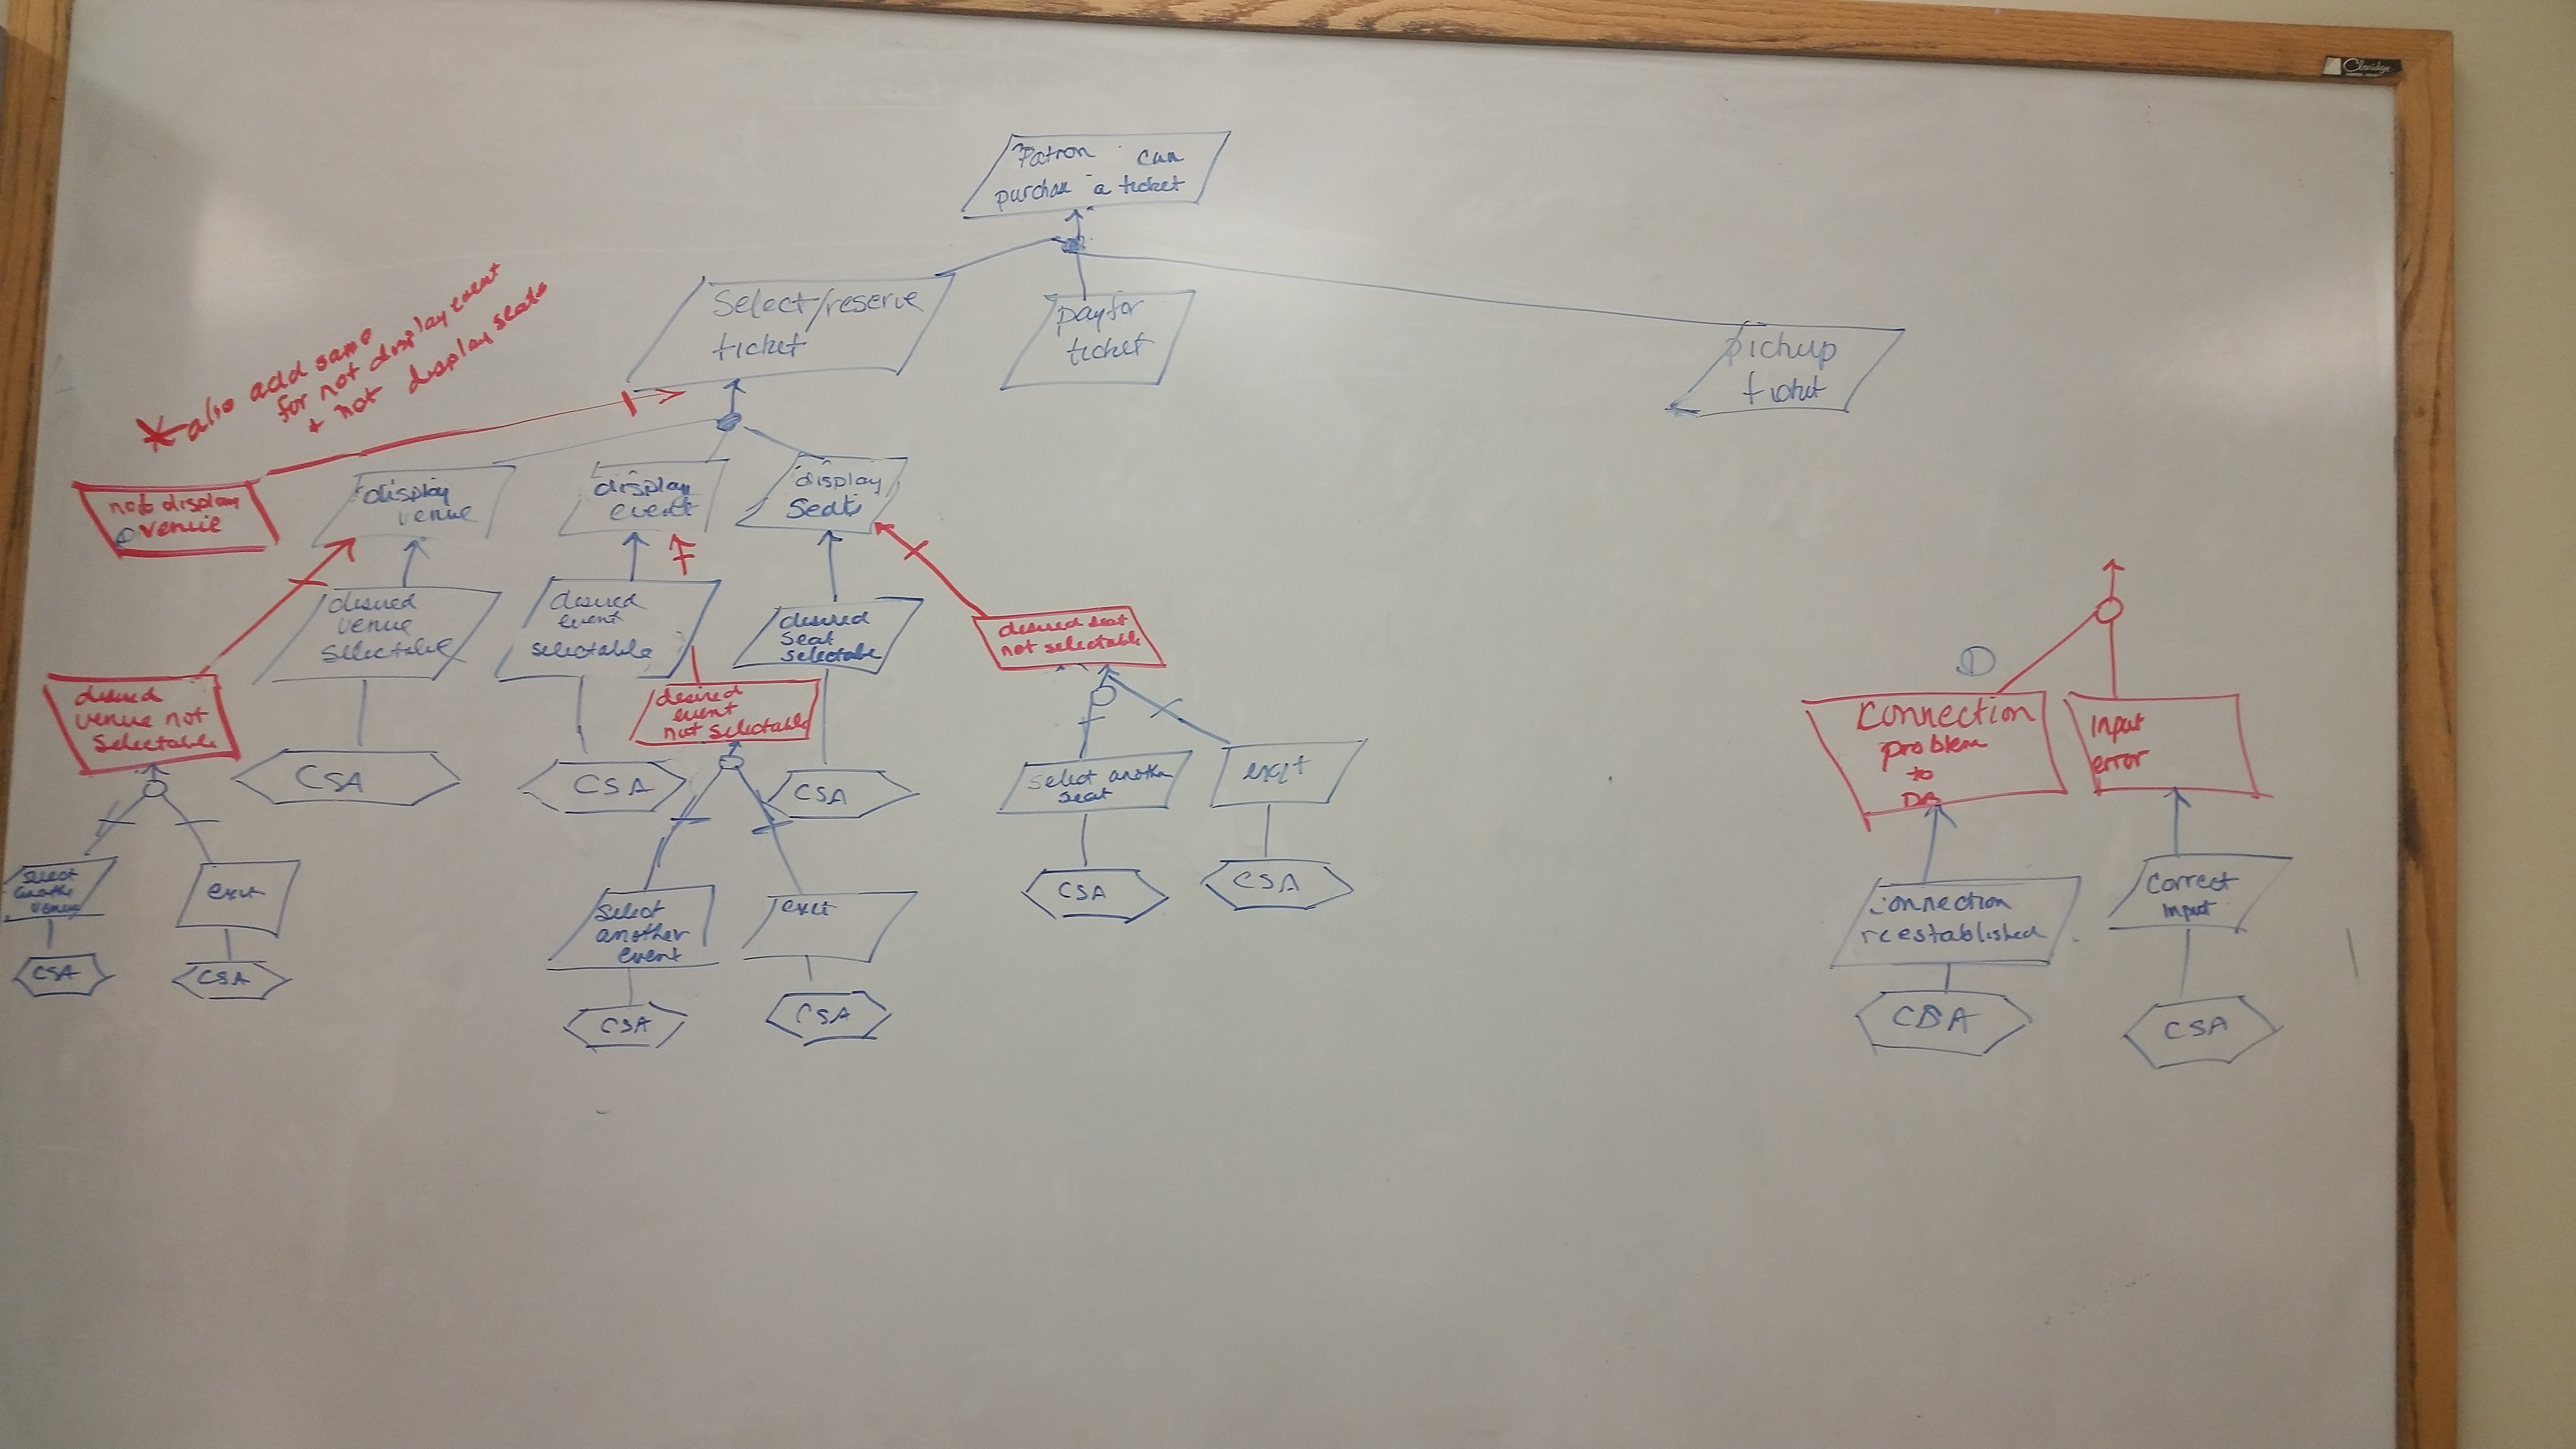 Claridge
Patron can
purchase a ticket
Select/reserve
ticket
pay for
ticket
pickup
ticket
* also add same
for not display event
+ not display seats
not display
venue
display
venue
display
event
display
Seats
desired
venue
selectable
desired
event
selectable
desired
seat
selectable
desired seat
not selectable
desired
venue not
selectable
desired
event
not selectable
CSA
CSA
CSA
select another
seat
exit
CSA
CSA
select
another
venue
exit
CSA
CSA
select
another
event
exit
CSA
CSA
D
Connection
problem
to
DB
Input
error
connection
reestablished
correct
input
CBA
CSA